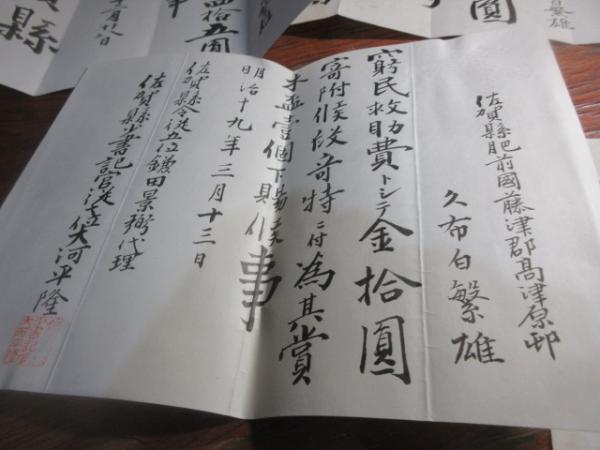 佐賀縣肥前國藤津郡髙津原邨
久布白繁雄
窮民救助費トシテ金拾圓
寄附候段奇特ニ付為其賞
木盃壹個下賜候事
明治十九年三月十三日
佐賀縣令従五位鎌田景弼代理
佐賀縣少書記官従七位大河平隆
拾五圓
事
縣
圓
繁雄